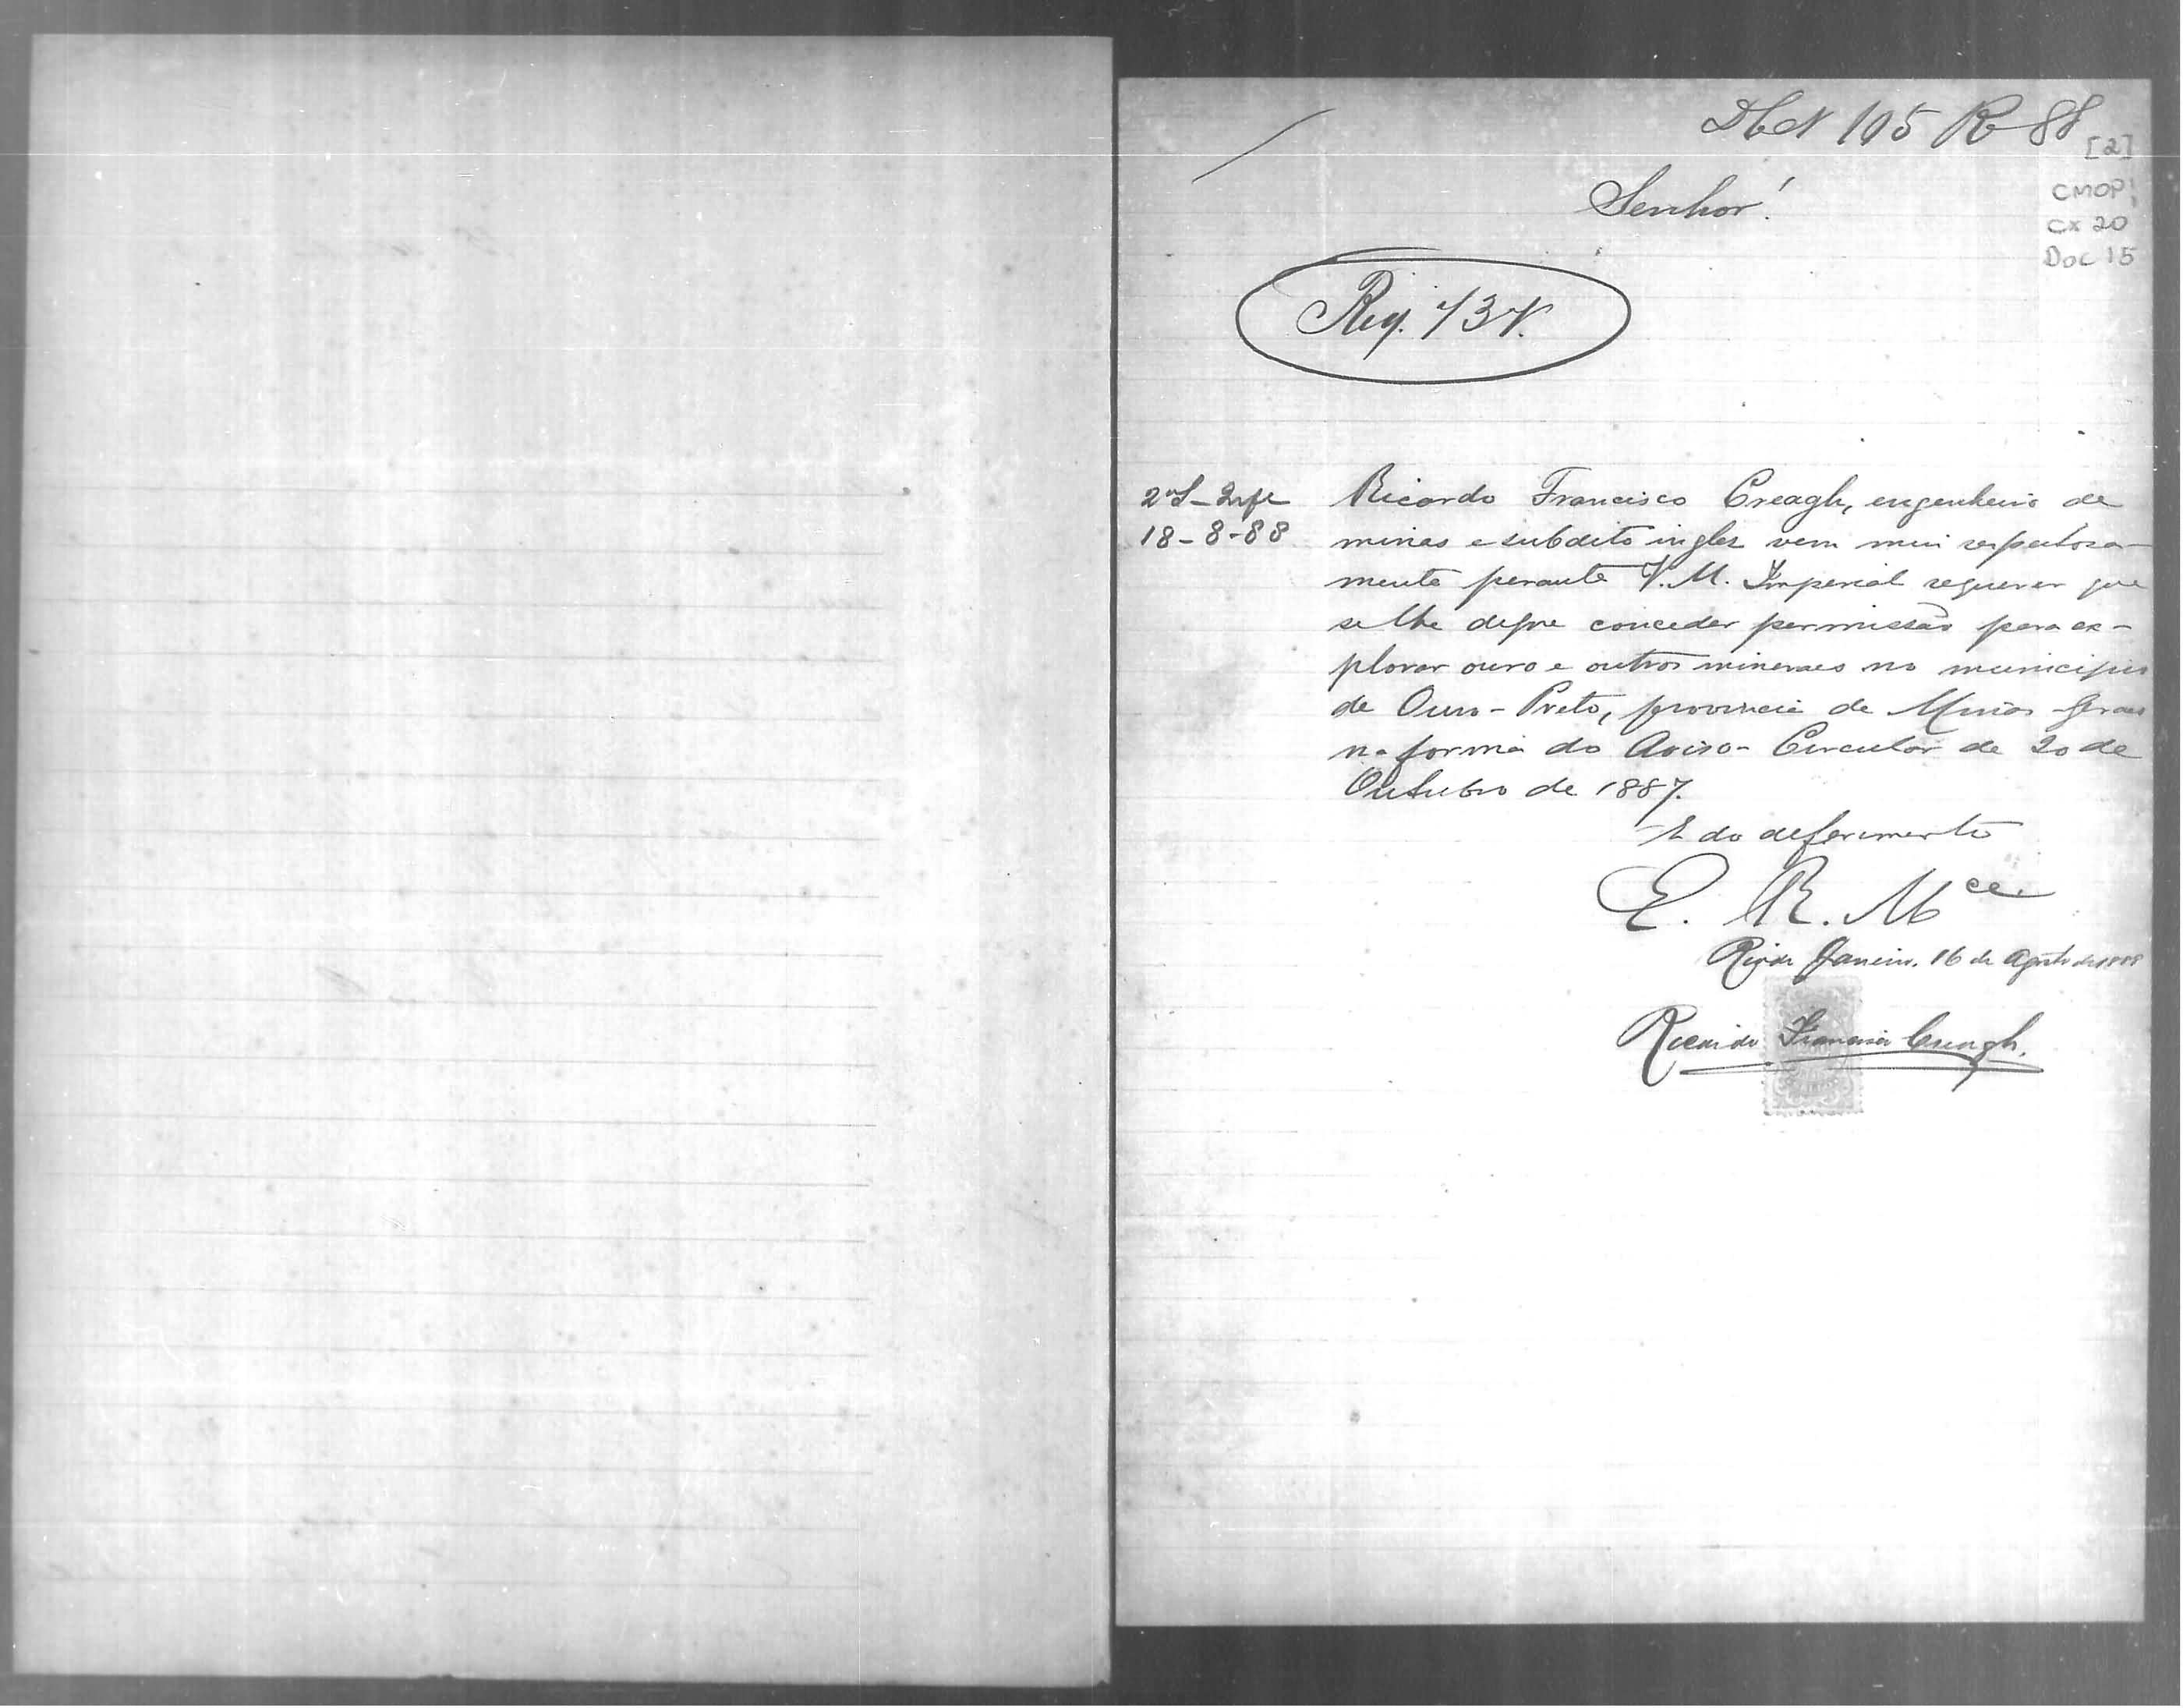 105 R 88
[2]
CMOP
Cx 20
Doc 15
Senhor!
Reg. 737.
2ª S-
18-8-88
Ricardo Francisco Creagh, engenheiro de
minas e subdito inglez vem mui respeitosa-
mente perante V. M. Imperial requerer que
se lhe digne conceder permissão para ex-
plorar ouro e outros mineraes no municipio
de Ouro-Preto, provincia de Minas Geraes
na forma do Aviso-Circular de 20 de
Outubro de 1887.
E do deferimento
E. R. Mce
Rio de Janeiro, 16 de Agosto de 1888
Ricardo Francisco Creagh.